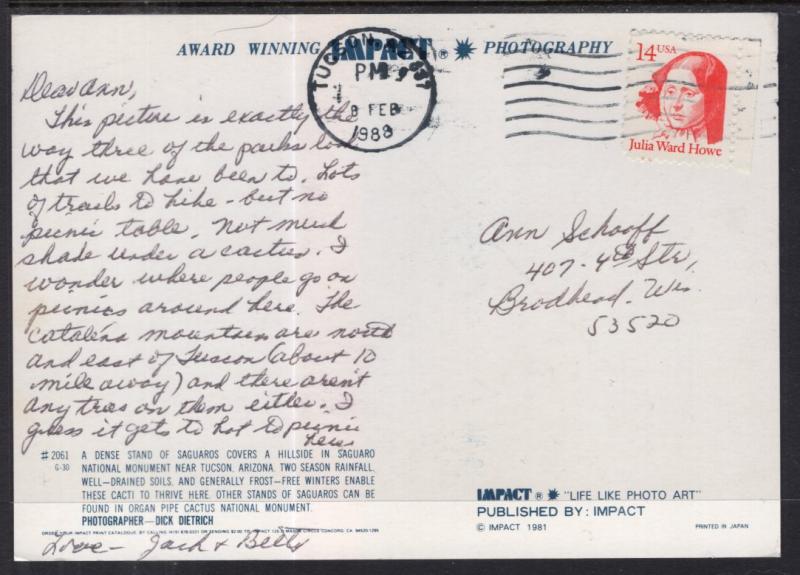 AWARD WINNING IMPACT® PHOTOGRAPHY
TUCSON
PM
8 FEB
1988
14 USA
Julia Ward Howe
Dear Ann,
This picture is exactly the
way three of the parks look
that we have been to. Lots
of trails to hike - but no
picnic table. Not much
shade under a cactus. I
wonder where people go on
picnics around here. The
Catalina mountain are north
and east of Tuscon (about 10
mile away) and there aren't
any trees on them either. I
guess it gets to hot to picnic
here
Ann Schooff
407 - 4th Str,
Brodhead, Wis.
53520
#2061
G-30
A DENSE STAND OF SAGUAROS COVERS A HILLSIDE IN SAGUARO
NATIONAL MONUMENT NEAR TUCSON, ARIZONA. TWO SEASON RAINFALL,
WELL-DRAINED SOILS, AND GENERALLY FROST-FREE WINTERS ENABLE
THESE CACTI TO THRIVE HERE. OTHER STANDS OF SAGUAROS CAN BE
FOUND IN ORGAN PIPE CACTUS NATIONAL MONUMENT.
PHOTOGRAPHER-DICK DIETRICH
Love - Jack & Betty
IMPACT® "LIFE LIKE PHOTO ART"
PUBLISHED BY: IMPACT
© IMPACT 1981
PRINTED IN JAPAN